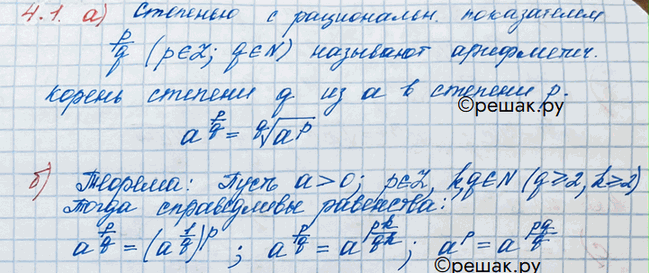 4.1. а) Степенью с рациональн. показателем
p/q (p∈Z; q∈N) называют арифметич.
корень степени q из a в степени p.
©решак.ру
a^(p/q) = ᑫ√(a^p)
©решак.ру
б) Теорема: Пусть a>0; p∈Z, k,q∈N (q≥2, k≥2)
Тогда справедливы равенства:
a^(p/q) = (a^(1/q))^p ; a^(p/q) = a^(pk/qk) ; a^p = a^(pq/q)